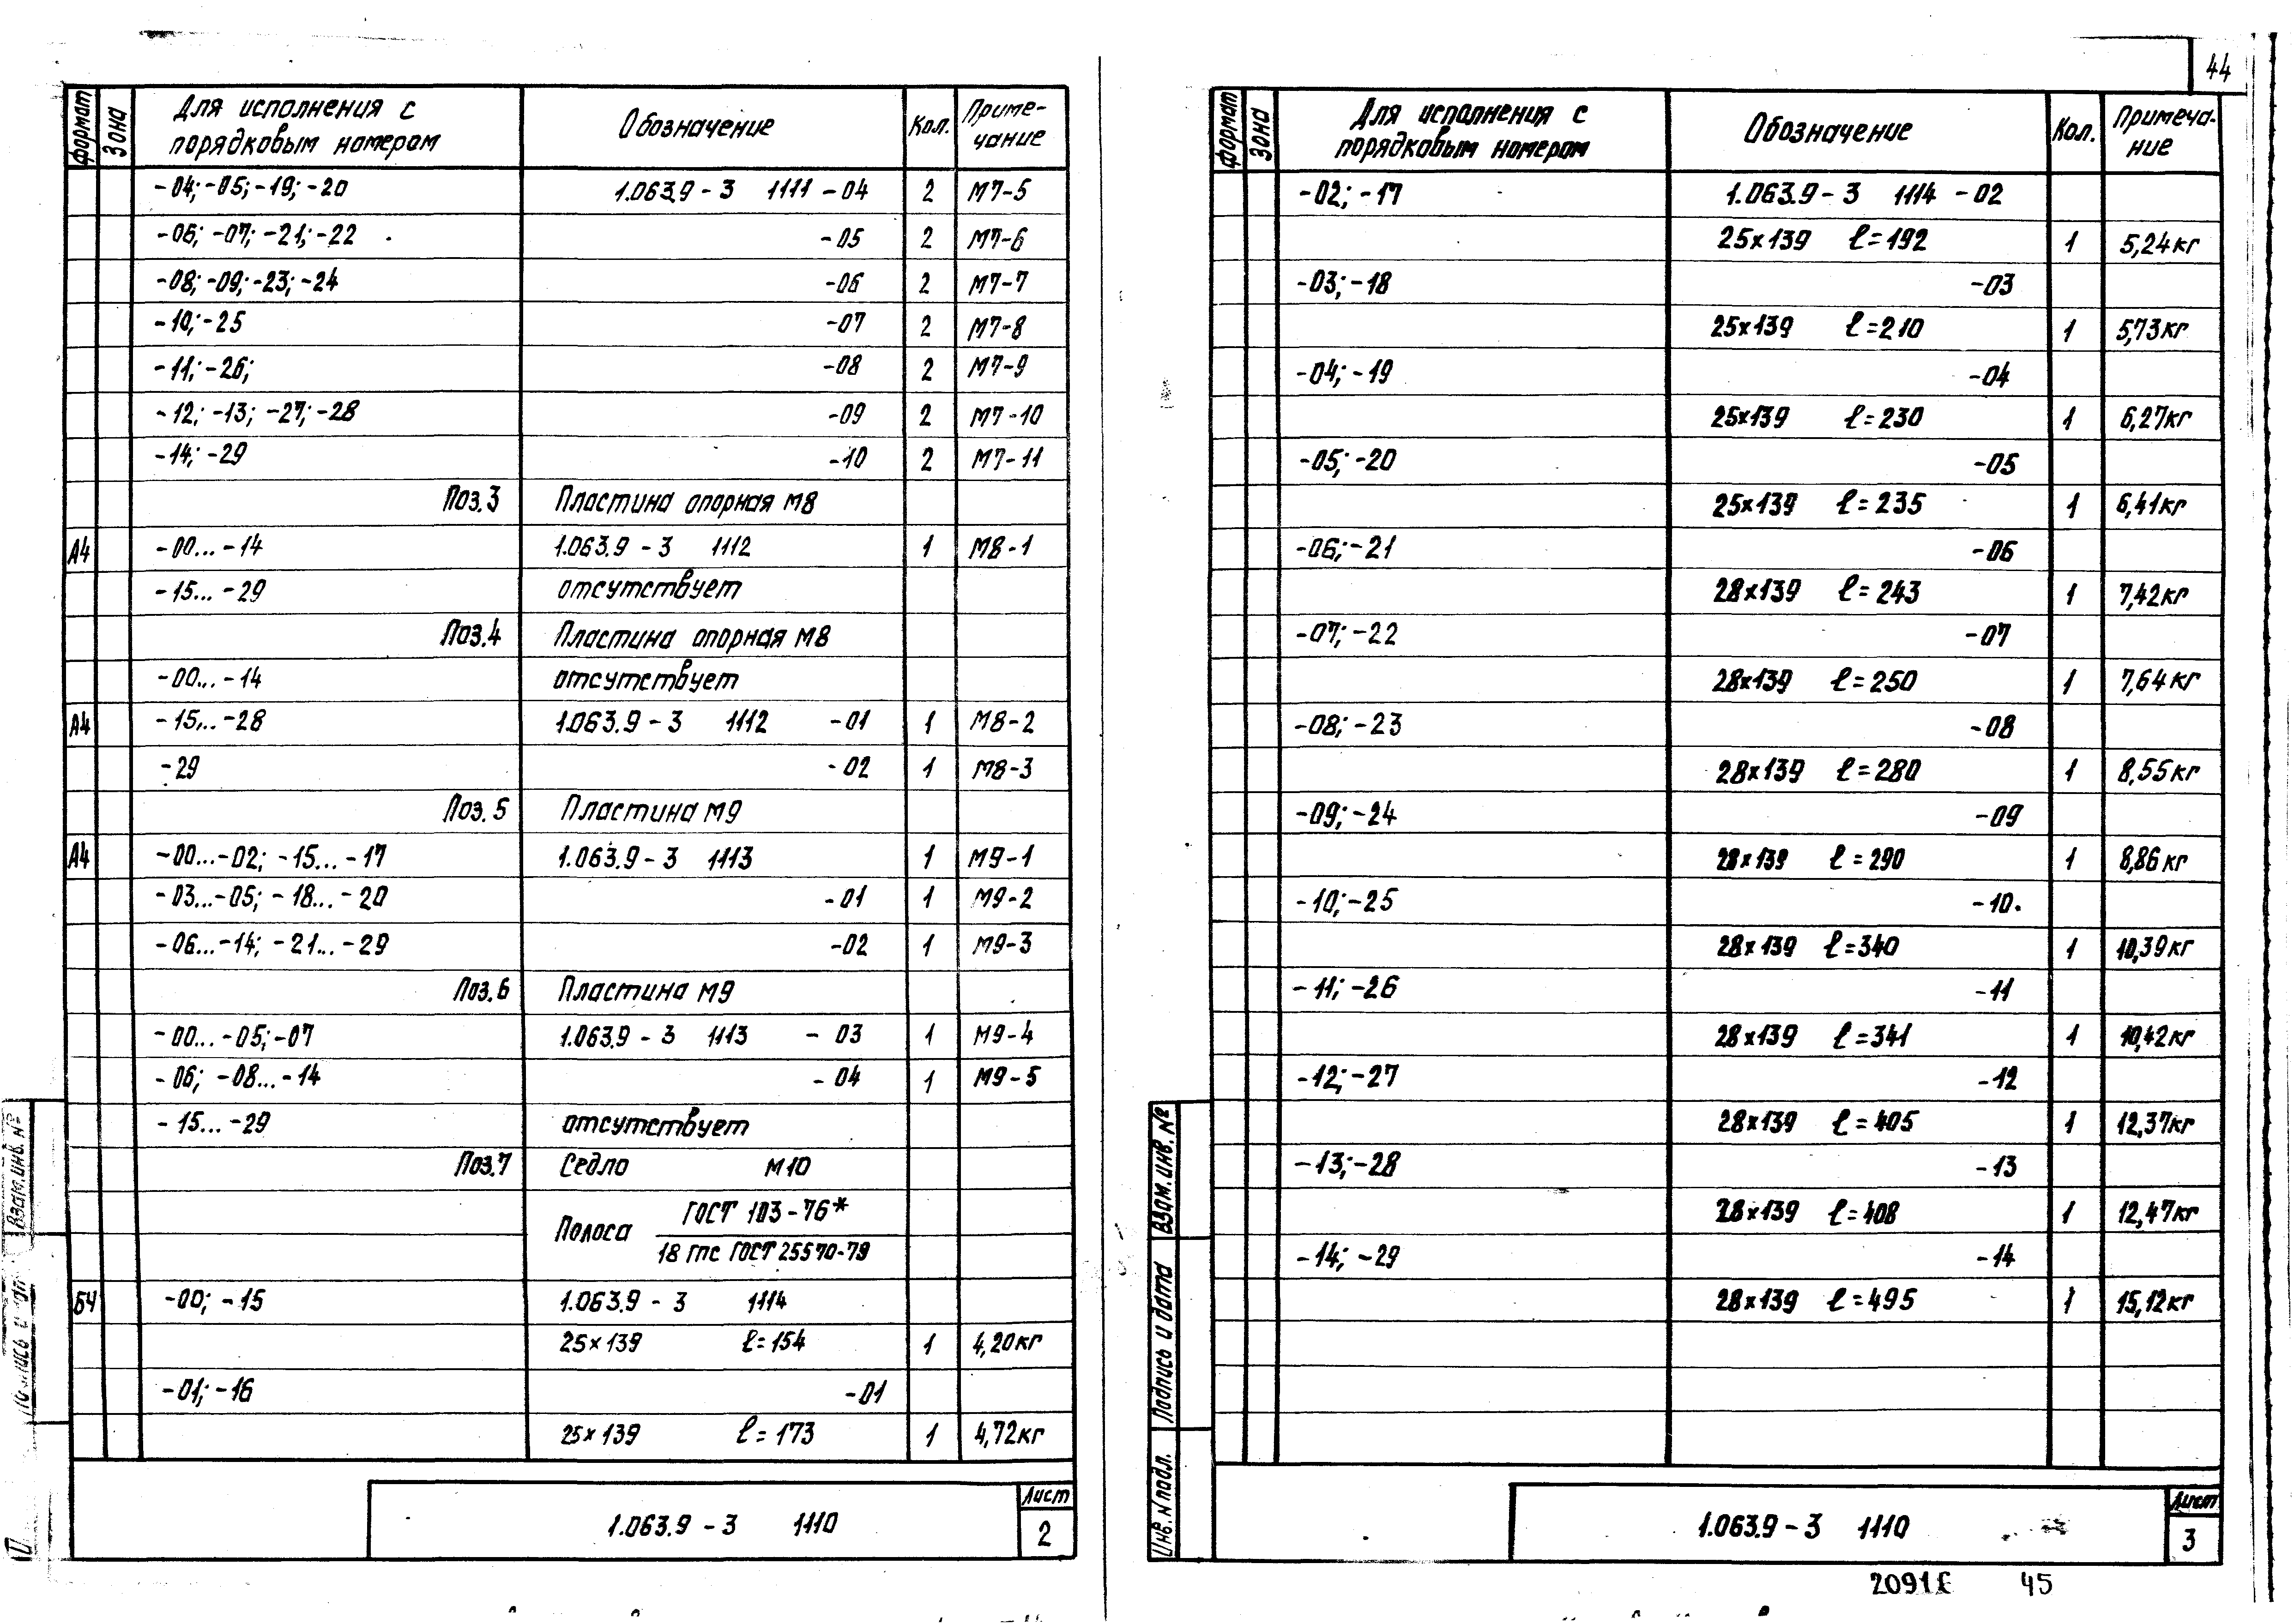 формат
Зона
Для исполнения с
порядковым номером
Обозначение
Кол.
Приме-
чание
-04; -05; -19; -20 1.063.9 - 3 1111 - 04 2 М7-5
-06; -07; -21; -22 -05 2 М7-6
-08; -09; -23; -24 -06 2 М7-7
-10; -25 -07 2 М7-8
-11; -26; -08 2 М7-9
-12; -13; -27; -28 -09 2 М7-10
-14; -29 -10 2 М7-11
Поз.3 Пластина опорная М8
А4 -00... -14 1.063.9 - 3 1112 1 М8-1
-15... -29 отсутствует
Поз.4 Пластина опорная М8
-00... -14 отсутствует
А4 -15... -28 1.063.9 - 3 1112 -01 1 М8-2
-29 -02 1 М8-3
Поз.5 Пластина М9
А4 -00...-02; -15... -17 1.063.9 - 3 1113 1 М9-1
-03...-05; -18... -20 -01 1 М9-2
-06...-14; -21... -29 -02 1 М9-3
Поз.6 Пластина М9
-00... -05; -07 1.063.9 - 3 1113 - 03 1 М9-4
-06; -08... -14 - 04 1 М9-5
-15... -29 отсутствует
Поз.7 Седло М10
Полоса ГОСТ 103-76*
18 Гпс ГОСТ 25570-79
БЧ -00; -15 1.063.9 - 3 1114
25×139 ℓ=154 1 4,20кг
-01; -16 -01
25×139 ℓ=173 1 4,72кг
Взам.инв. №
1.063.9 - 3 1110
Лист
2
44
формат
Зона
Для исполнения с
порядковым номером
Обозначение
Кол.
Примеча-
ние
-02; -17 1.063.9 - 3 1114 - 02
25×139 ℓ=192 1 5,24кг
-03; -18 -03
25×139 ℓ=210 1 5,73кг
-04; -19 -04
25×139 ℓ=230 1 6,27кг
-05; -20 -05
25×139 ℓ=235 1 6,41кг
-06; -21 -06
28×139 ℓ=243 1 7,42кг
-07; -22 -07
28×139 ℓ=250 1 7,64кг
-08; -23 -08
28×139 ℓ=280 1 8,55кг
-09; -24 -09
28×139 ℓ=290 1 8,86кг
-10; -25 -10.
28×139 ℓ=340 1 10,39кг
-11; -26 -11
28×139 ℓ=341 1 10,42кг
-12; -27 -12
28×139 ℓ=405 1 12,37кг
-13; -28 -13
28×139 ℓ=408 1 12,47кг
-14; -29 -14
28×139 ℓ=495 1 15,12кг
Взам.инв. №
Подпись и дата
Инв.№ подл.
1.063.9 - 3 1110
Лист
3
45